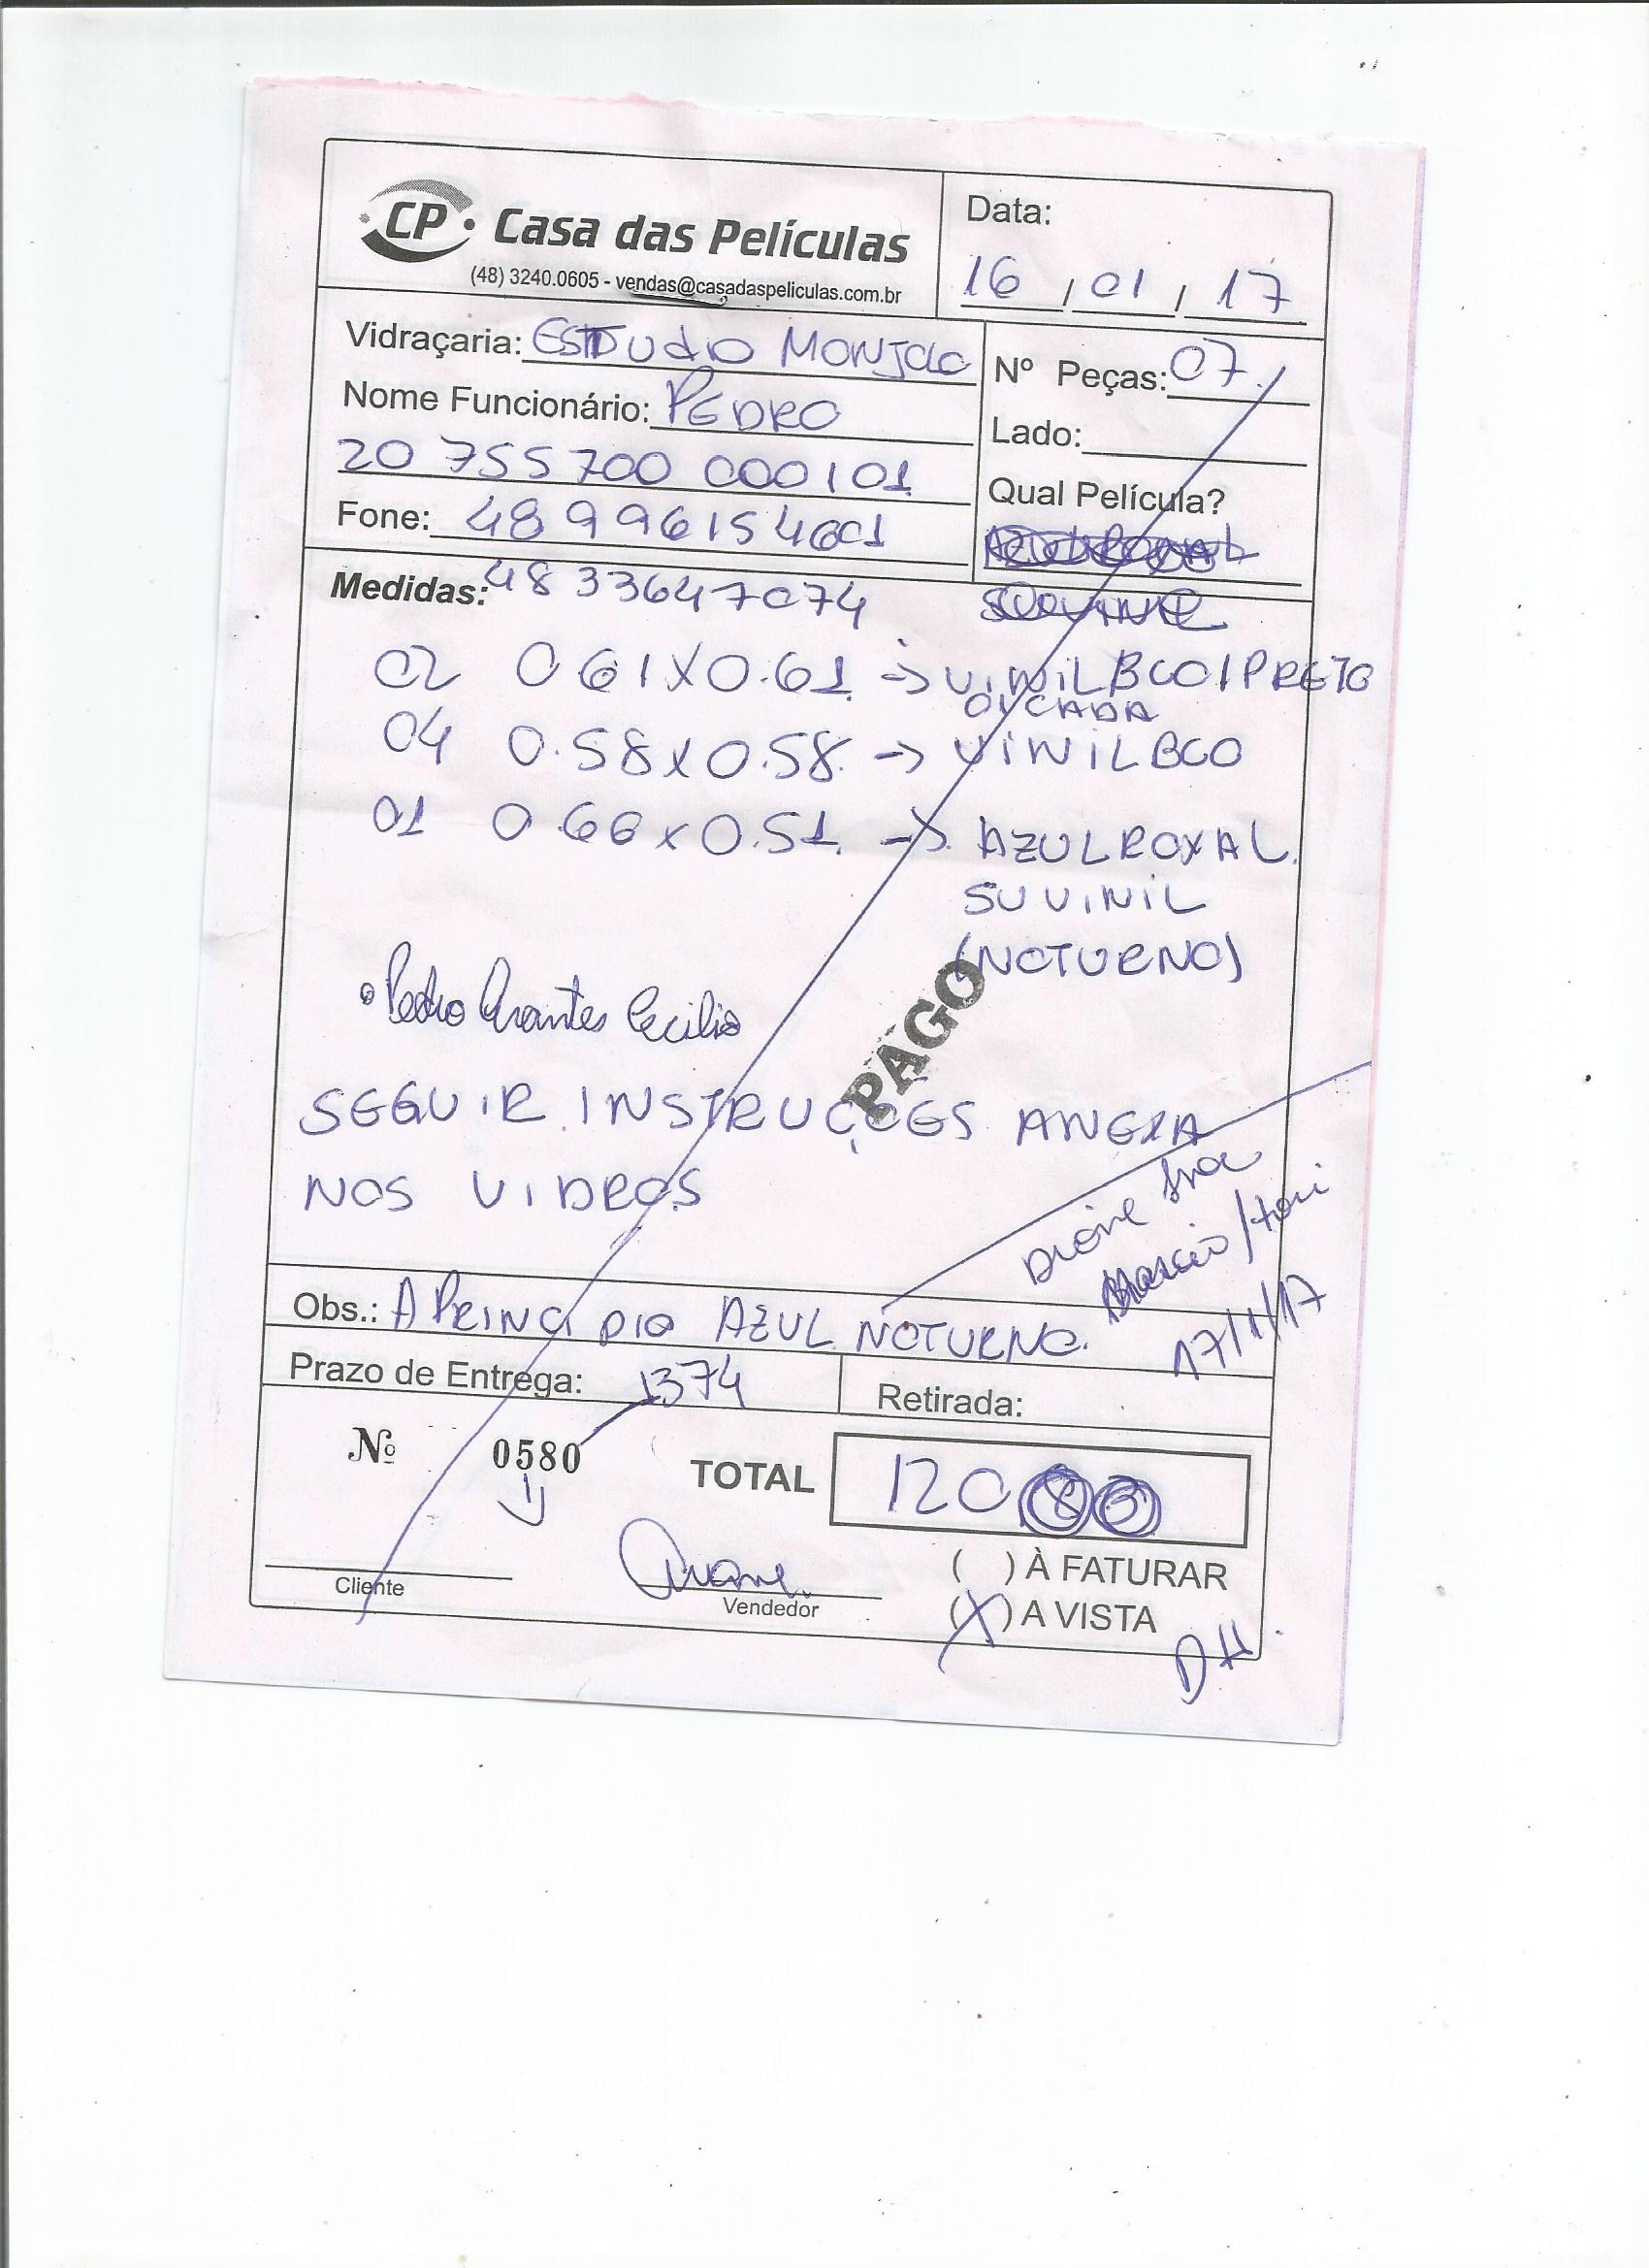 CP · Casa das Películas
(48) 3240.0605 - vendas@casadaspeliculas.com.br
Data:
16 / 01 / 17
Vidraçaria: ESTUDIO MONJOLO
Nome Funcionário: PEDRO
20 755 700 0001 01
Fone: 48 996154601
Nº Peças: 07
Lado:
Qual Película?
Medidas: 48 33647074
02 0 61 X 0.61 -> VINIL BCO / PRETO
04 0.58 X 0.58 -> VINIL BCO
01 0.66 x 0.51 -> AZUL ROXAL
SUVINIL
(NOTURNO)
• Pedro Arantes Cecilio
PAGO
SEGUIR INSTRUÇOES ANEXA
NOS VIDROS
17/1/17
Obs.: A PRINCIPIO AZUL NOTURNO.
Prazo de Entrega: 1374
Retirada:
Nº 0580
TOTAL 120
Cliente
Vendedor
( ) À FATURAR
(X) A VISTA
DH.